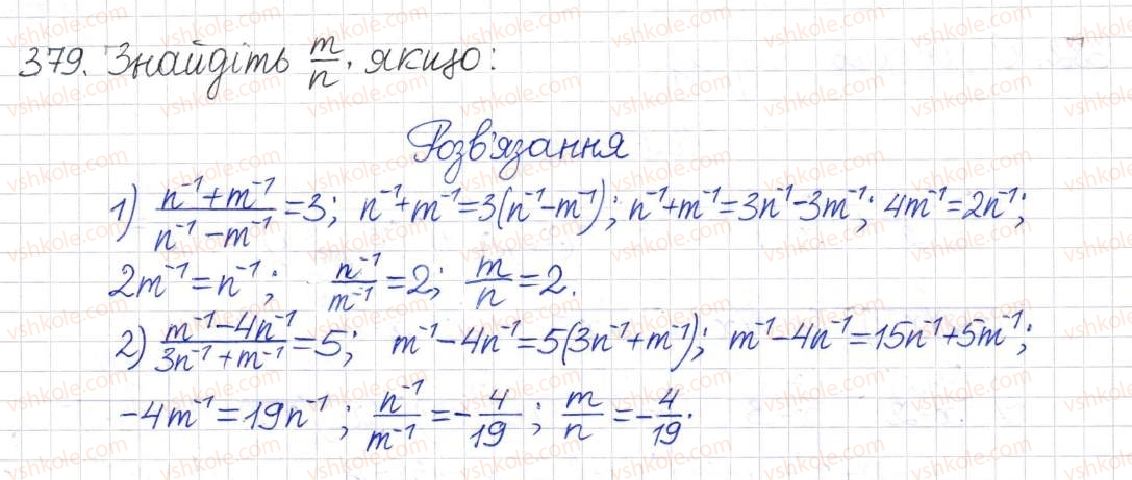 379. Знайдіть m/n, якщо:
Розв'язання
1) (n⁻¹+m⁻¹)/(n⁻¹-m⁻¹)=3; n⁻¹+m⁻¹=3(n⁻¹-m⁻¹); n⁻¹+m⁻¹=3n⁻¹-3m⁻¹; 4m⁻¹=2n⁻¹;
2m⁻¹=n⁻¹; n⁻¹/m⁻¹=2; m/n=2.
2) (m⁻¹-4n⁻¹)/(3n⁻¹+m⁻¹)=5; m⁻¹-4n⁻¹=5(3n⁻¹+m⁻¹); m⁻¹-4n⁻¹=15n⁻¹+5m⁻¹;
-4m⁻¹=19n⁻¹; n⁻¹/m⁻¹=-4/19; m/n=-4/19.
vshkole.com